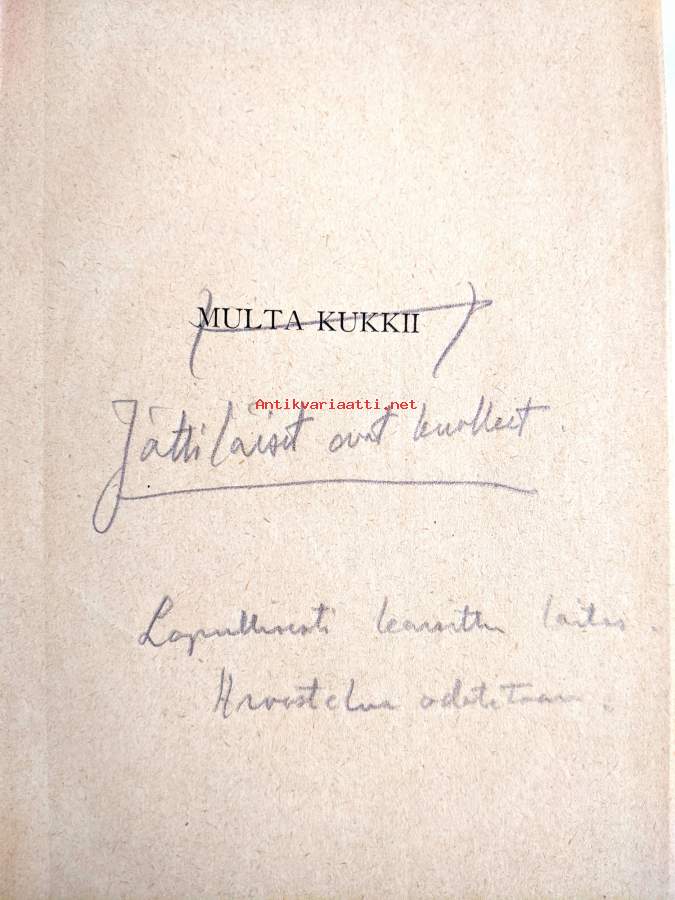 MULTA KUKKII
Antikvariaatti.net
Jättiläiset ovat kuolleet.
Lopullisesti karsittu laitos.
Arvostelua odotetaan.